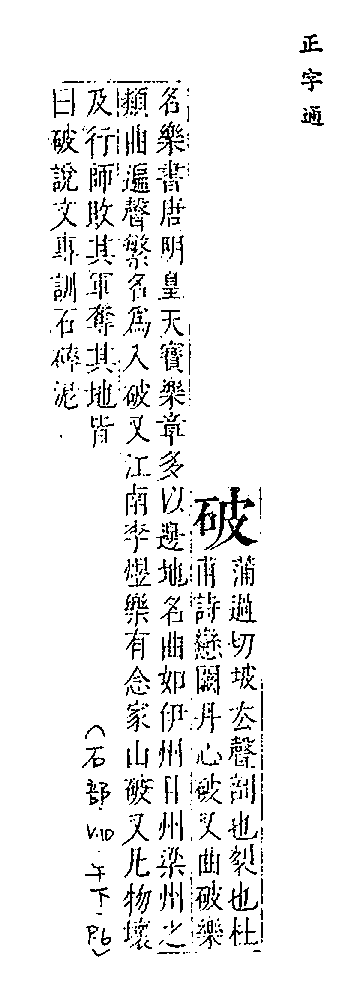 正字通
破
蒲過切坡去聲剖也裂也杜
甫詩戀闕丹心破又曲破樂
名樂書唐明皇天寶樂章多以邊地名曲如伊州日州梁州之
類曲遍聲繁名為入破又江南李煜樂有念家山破又凡物壞
及行師敗其軍奪其地皆
曰破說文專訓石碎泥
(石部 V.10 午下 P.6)